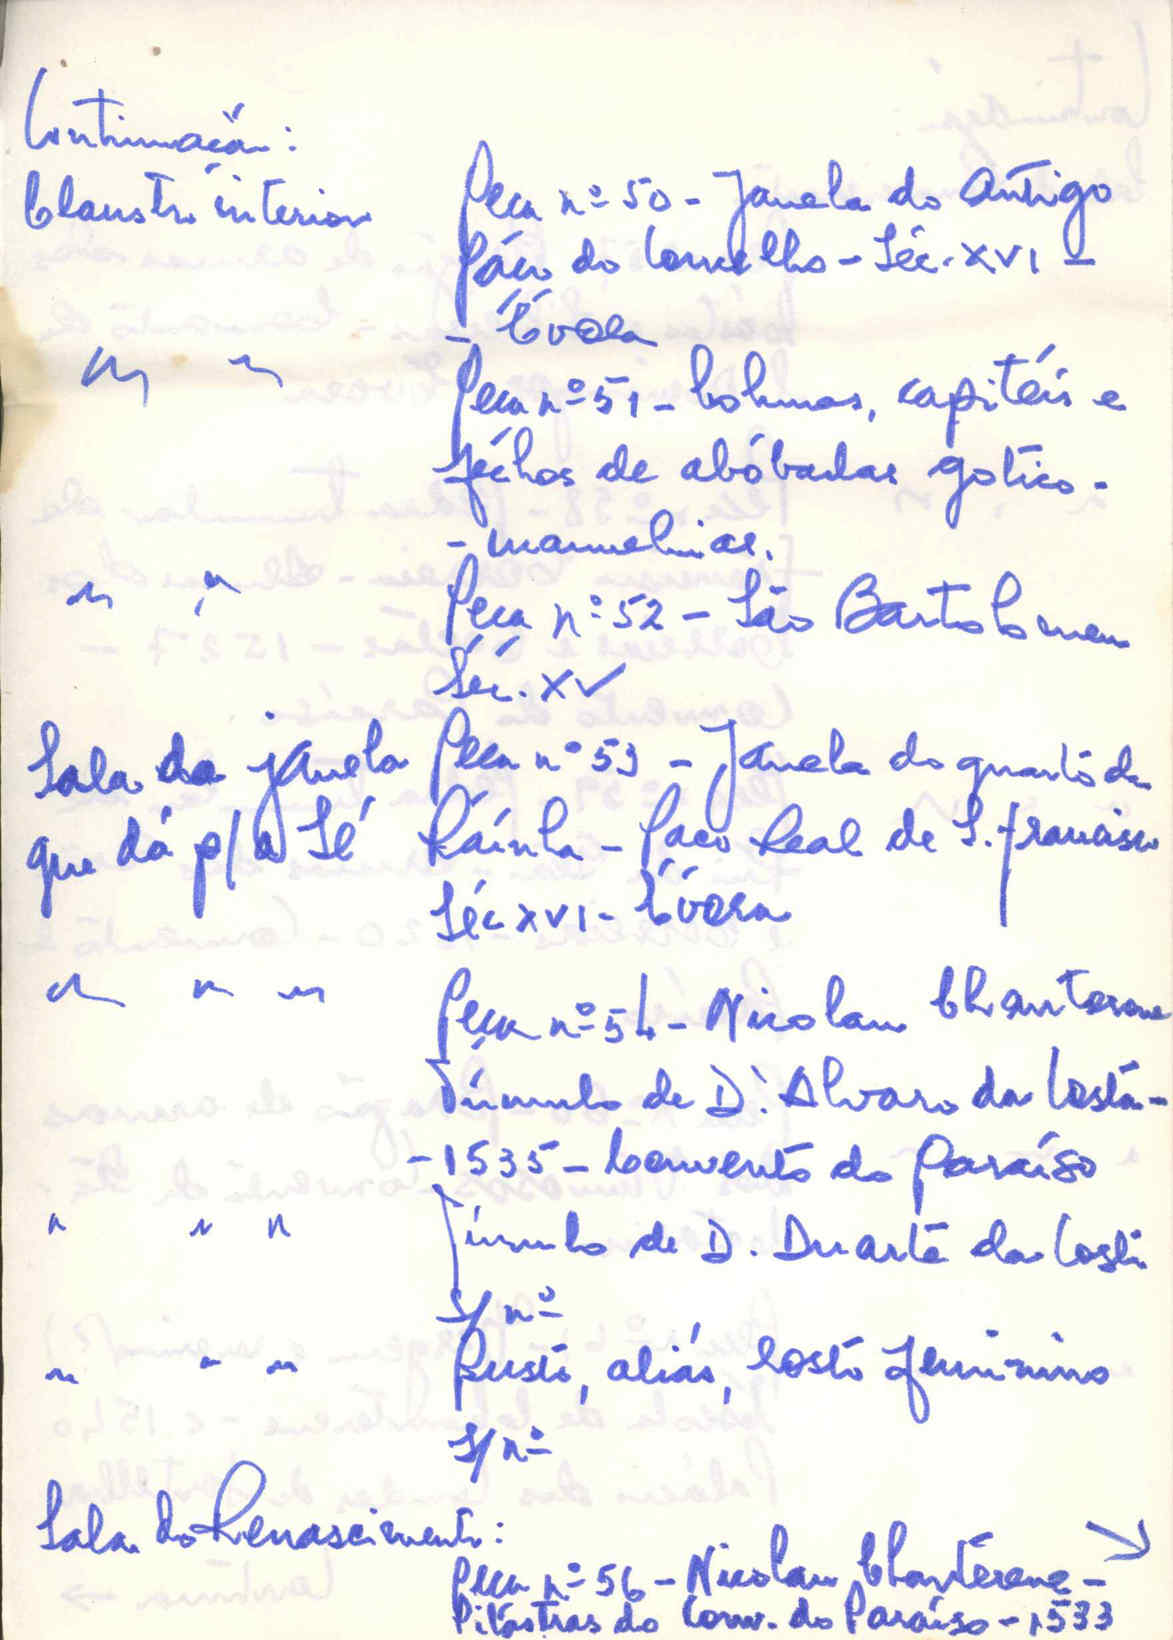 Continuação:
Claustro interior
Peça nº 50 - Janela do Antigo
Páço do Concelho - Séc. XVI -
- Évora
" "
Peça nº 51 - Colunas, capitéis e
féchos de abóbadas gotico-
- manuelinas.
" "
Peça nº 52 - São Bartolomeu
Séc. XV
Sala da janela
que dá p/ a Sé
Peça nº 53 - Janela do quarto da
Raínha - Paço Real de S. Francisco
Séc XVI - Évora
" " "
Peça nº 54 - Nicolau Chanterene
Túmulo de D. Alvaro da Costa -
- 1535 - Convento do Paraíso
" " "
Túmulo de D. Duarte da Costa
s/ nº
" " "
Busto, aliás, rosto feminino
s/ nº
Sala do Renascimento:
Peça nº 56 - Nicolau Chanterene -
Pilastras do Conv. do Paraíso - 1533